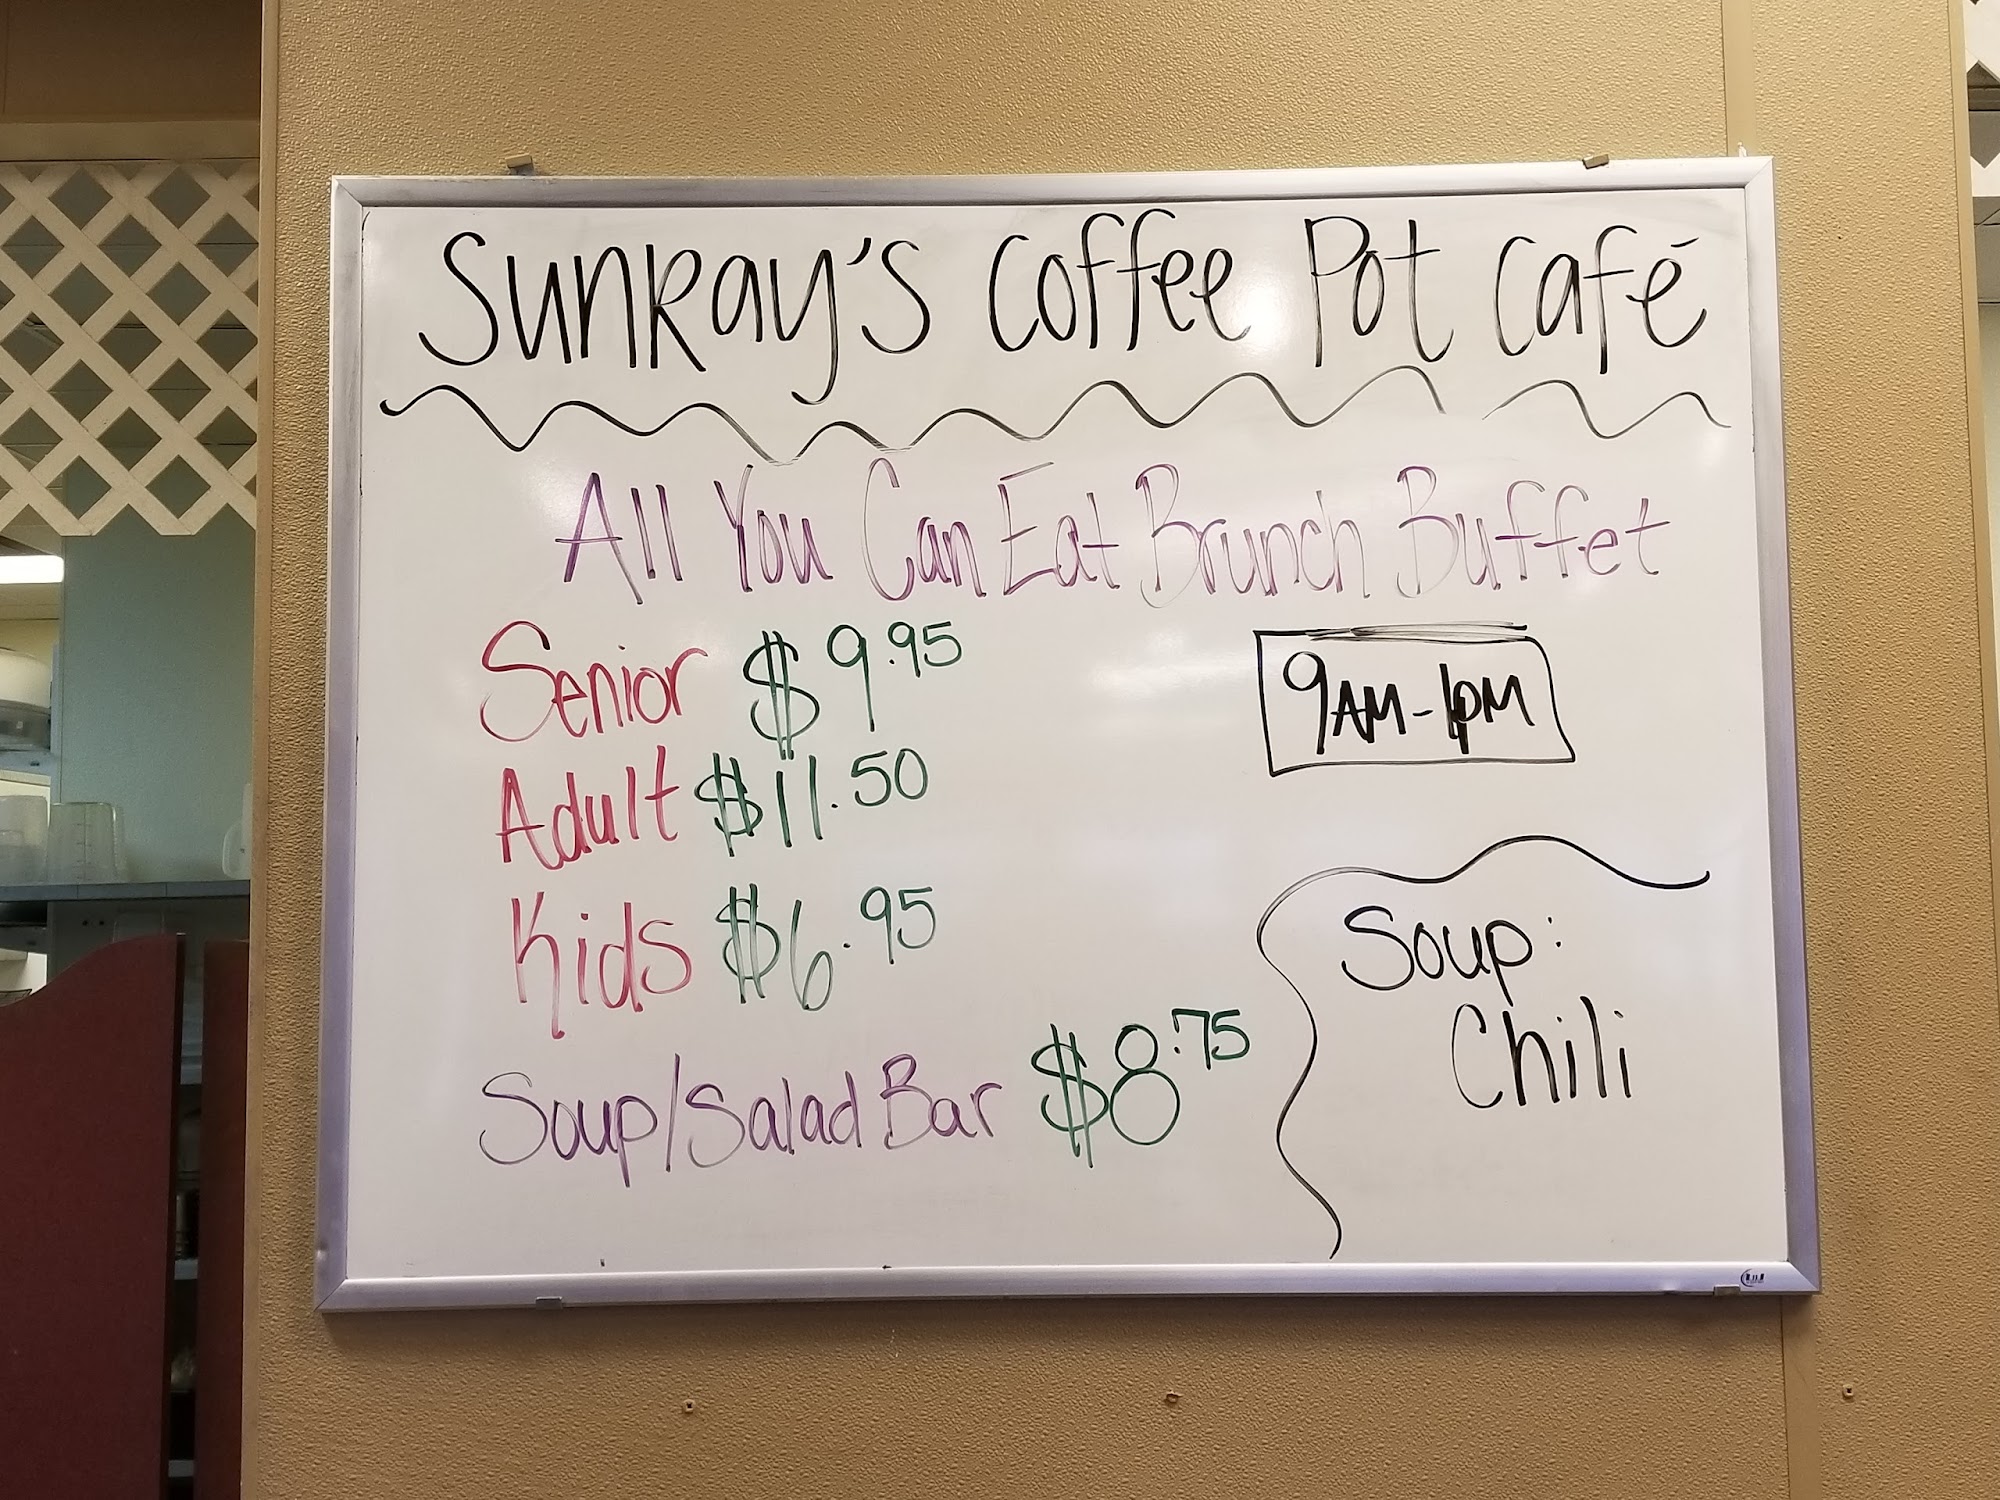 Sunray's Coffee Pot Café
All You Can Eat Brunch Buffet
Senior $9.95
9AM-1PM
Adult $11.50
Kids $6.95
Soup/Salad Bar $8.75
Soup:
Chili